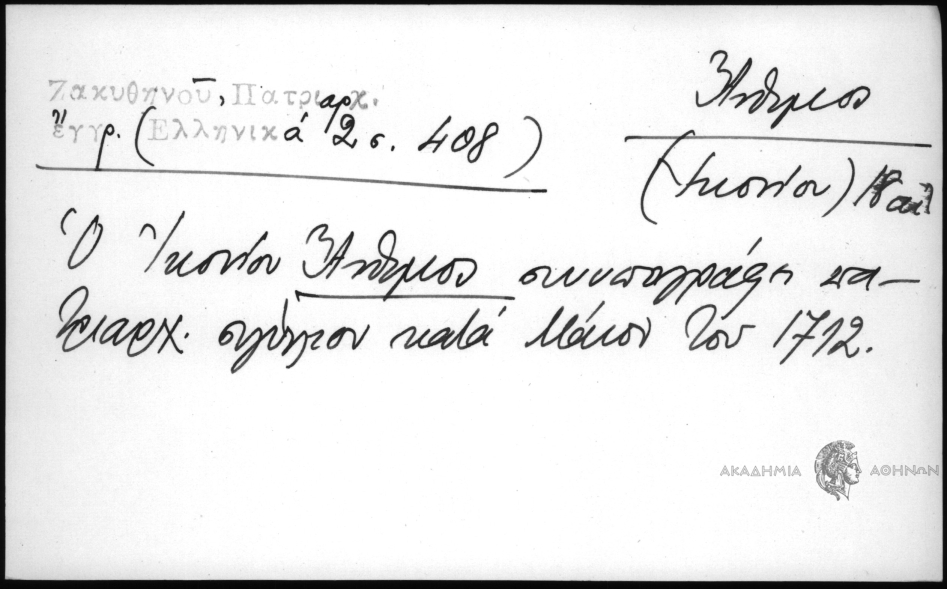 Ζακυθηνοῦ, Πατριαρχ.
ἔγγρ. (Ἑλληνικά 2 σ. 408)
Ἄνθιμος
(Ἰκονίου) 18 αἰ.
Ὁ Ἰκονίου Ἄνθιμος συνυπογράφει πα-
τριαρχ. σιγίλλιον κατά Μάϊον τοῦ 1712.
ΑΚΑΔΗΜΙΑ ΑΘΗΝΩΝ